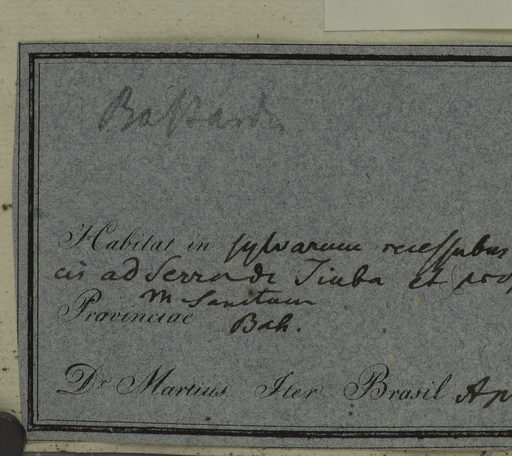 Habitat in sylvarum recessubus
cis ad Serra de Tiuba et prop
m. Sanctum
Provinciae Bah.
Dr. Martius Iter Brasil Ap